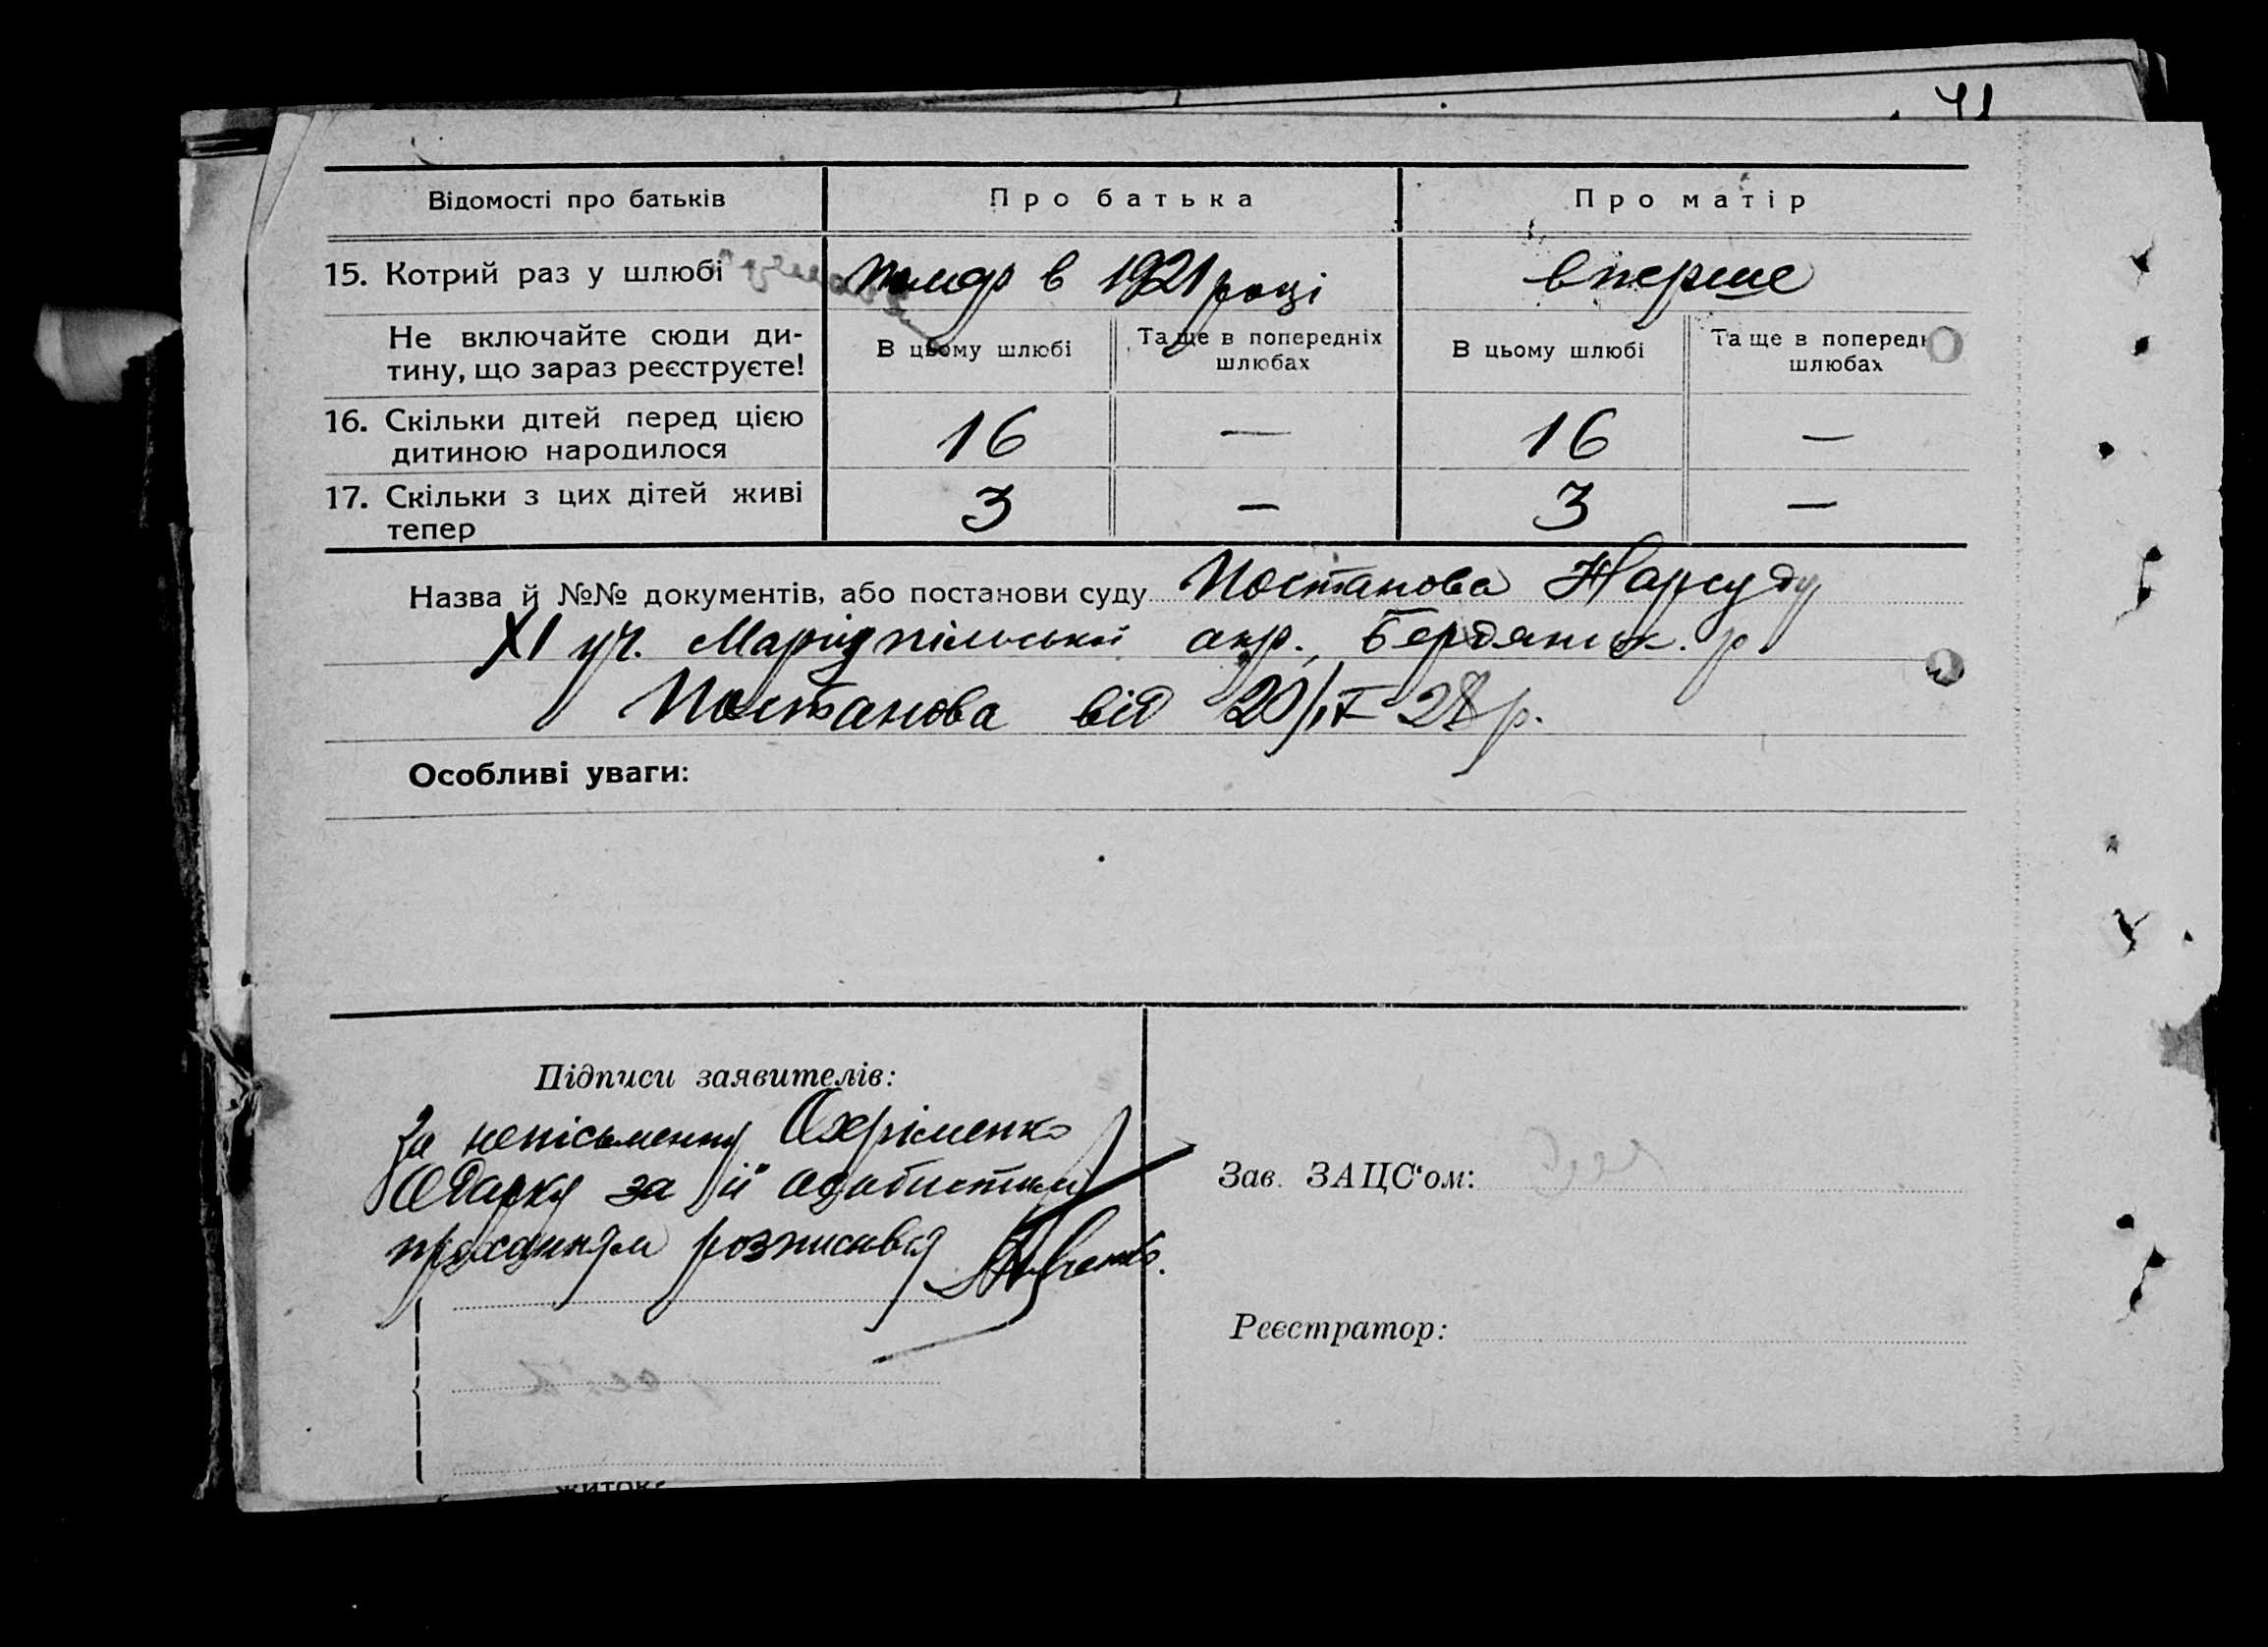 71
Відомості про батьків
Про батька
Про матір
15. Котрий раз у шлюбі
помер в 1921 році
вперше
Не включайте сюди ди-
тину, що зараз реєструєте!
В цьому шлюбі
Та ще в попередніх
шлюбах
В цьому шлюбі
Та ще в поперед
шлюбах
16. Скільки дітей перед цією
дитиною народилося
16 — 16 —
17. Скільки з цих дітей живі
тепер
3 — 3 —
Назва й №№ документів, або постанови суду Постанова Нарсуду
XI уч. Маріупільської окр., Бердянськ. р
Постанова від 20/IV-28 р.
Особливі уваги:
Підписи заявителів:
За неписьменну Охріменко
Одарку за її особистим
проханням розписався
Зав. ЗАЦС‘ом:
Реєстратор: